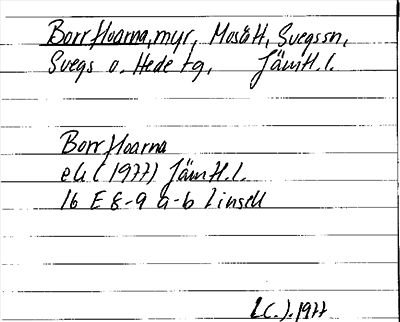 Borrfloarna, myr, Mosätt, Svegssn,
Svegs o. Hede tg, Jämtl. l.
Borrfloarna
ek (1977) Jämtl. l.
16 E 8-9 a-b Linsell
1977